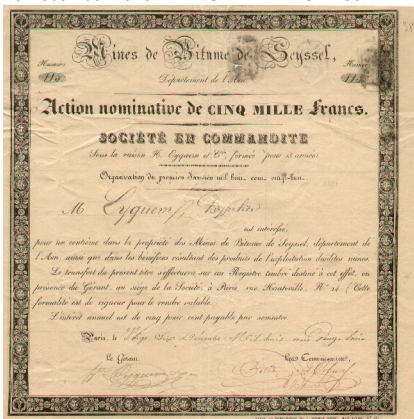 Mines de Bitume de Seyssel,
Numéro Numéro
113 113
Département de l'Ain
Action nominative de CINQ MILLE Francs.
SOCIÉTÉ EN COMMANDITE
Sous la raison H. et Cie, formée pour
Organisation du premier Janvier mil huit cent vingt-huit.
M Eyquem
est intéressé,
pour un centième dans la propriété des Mines de Bitume de Seyssel, département de
l'Ain ainsi que dans les bénéfices résultant des produits de l'exploitation desdites mines.
Le transfert du présent titre s'effectuera sur un Registre timbré destiné à cet effet, en
présence du Gérant, au siège de la Société à Paris, rue Hauteville, No (Cette
formalité est de rigueur pour le rendre valable.
L'intérêt annuel est de cinq pour cent payable par semestre.
Paris, le
Le Gérant, Les Commissaires,